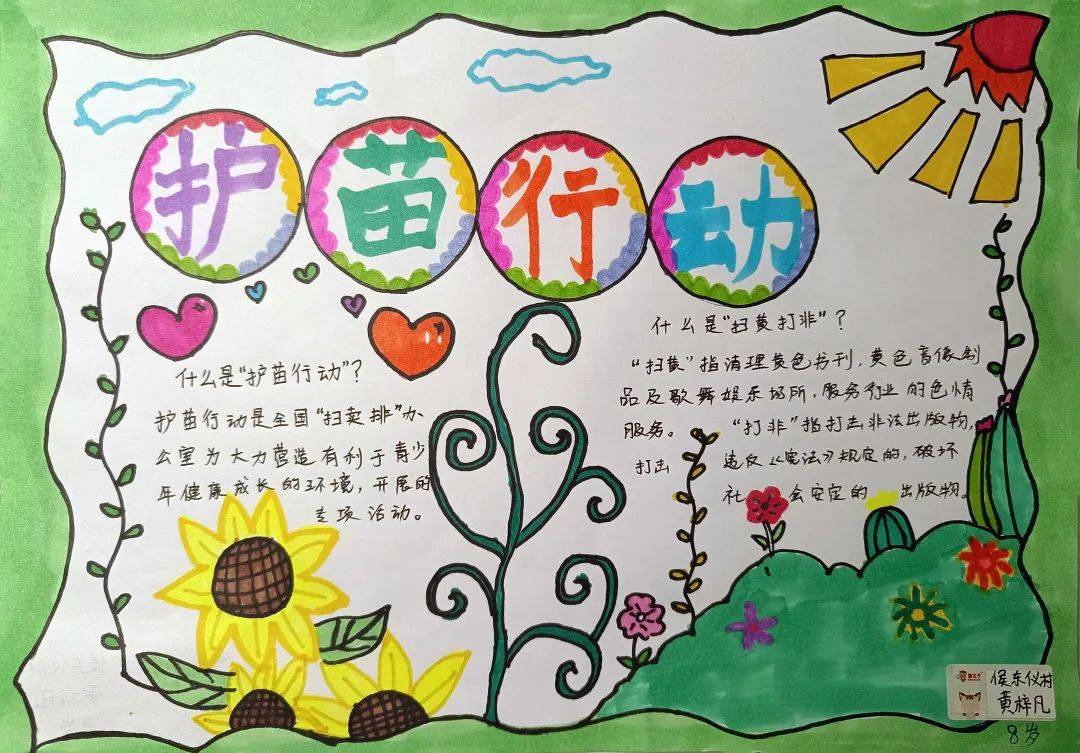 护苗行动
什么是“护苗行动”？
护苗行动是全国“扫卖排”办
公室为大力营造有利于青少
年健康成长的环境，开展的
专项活动。
什么是“扫黄打非”？
“扫黄”指清理黄色书刊，黄色音像制
品及歌舞娱乐场所，服务行业的色情
服务。 “打非”指打击非法出版物，
打击 违反《宪法》规定的，破坏
社 会安定的 出版物。
侯东仪村
黄梓凡
8岁